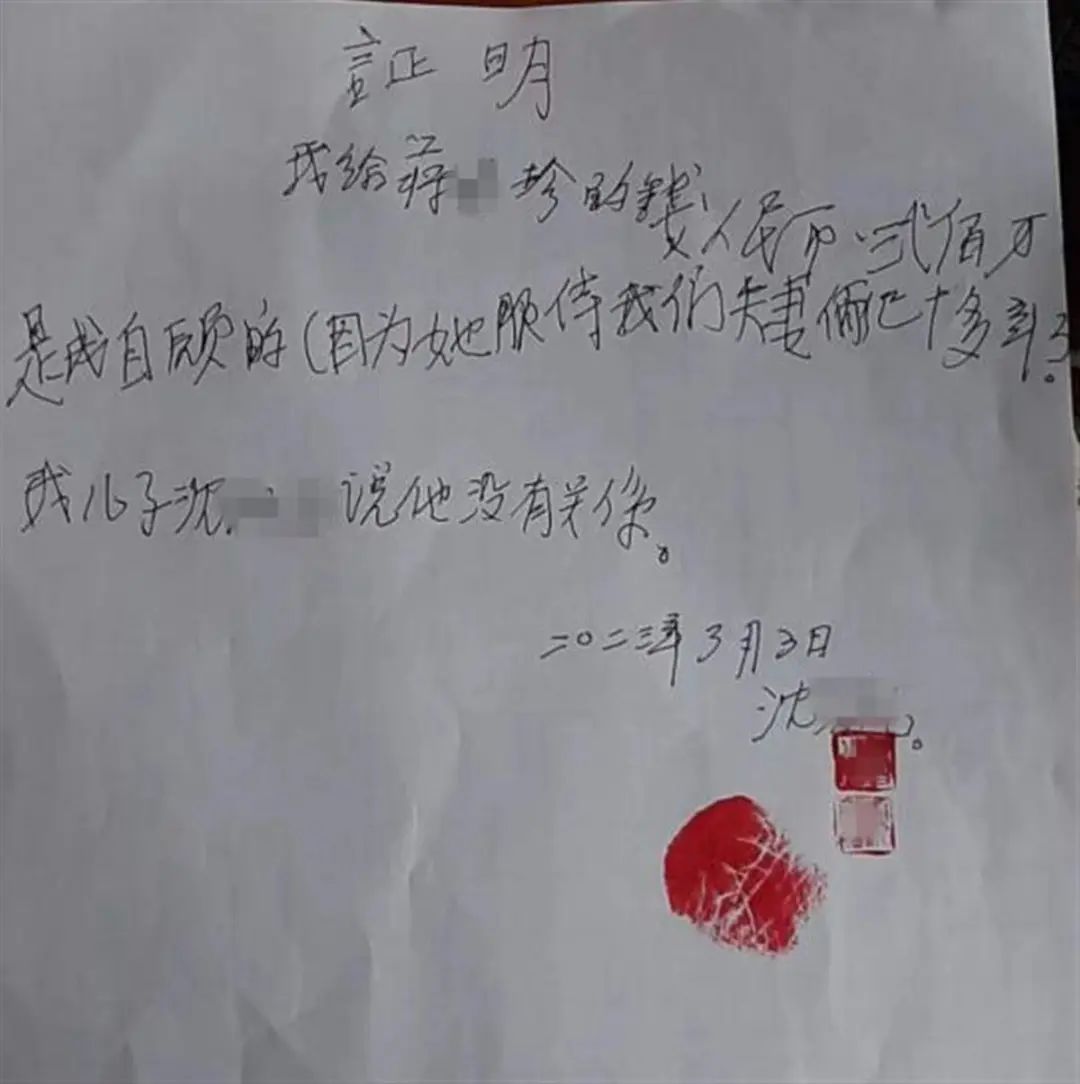 証明
我给蒋 珍的钱人民币弍佰万
是我自愿的(因为她服侍我们夫妻俩已十多年了。
我儿子沈 说他没有关系。
二〇二三年3月3日
沈 。